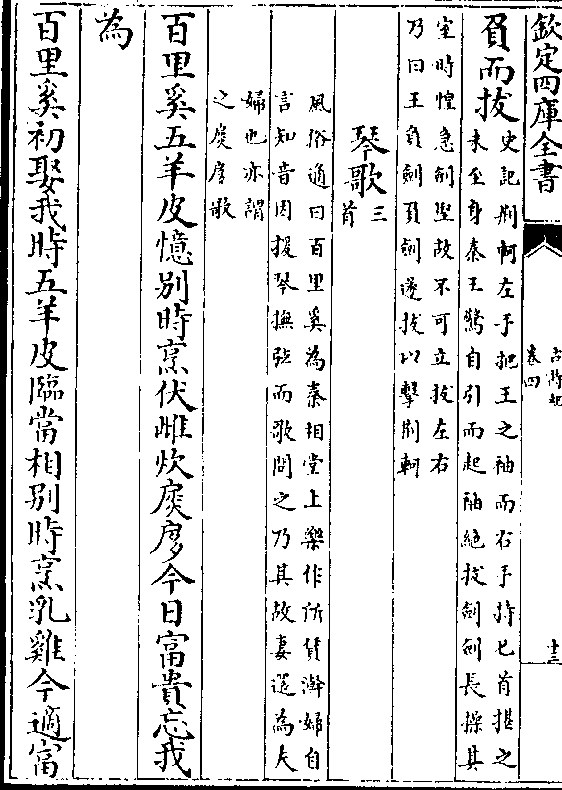 欽定四庫全書
古詩紀
卷四
十三
負而拔
史記荆軻左手把王之袖而右手持匕首揕之
未至身秦王驚自引而起袖絶拔劍劍長操其
室時惶急劍堅故不可立拔左右
乃曰王負劍負劍遂拔以擊荆軻
琴歌三首
風俗通曰百里奚為秦相堂上樂作所賃澣婦自
言知音因援琴撫弦而歌問之乃其故妻還為夫
婦也亦謂
之扊扅歌
百里奚五羊皮憶别時烹伏雌炊扊扅今日富貴忘我
為
百里奚初娶我時五羊皮臨當相别時烹乳雞今適富